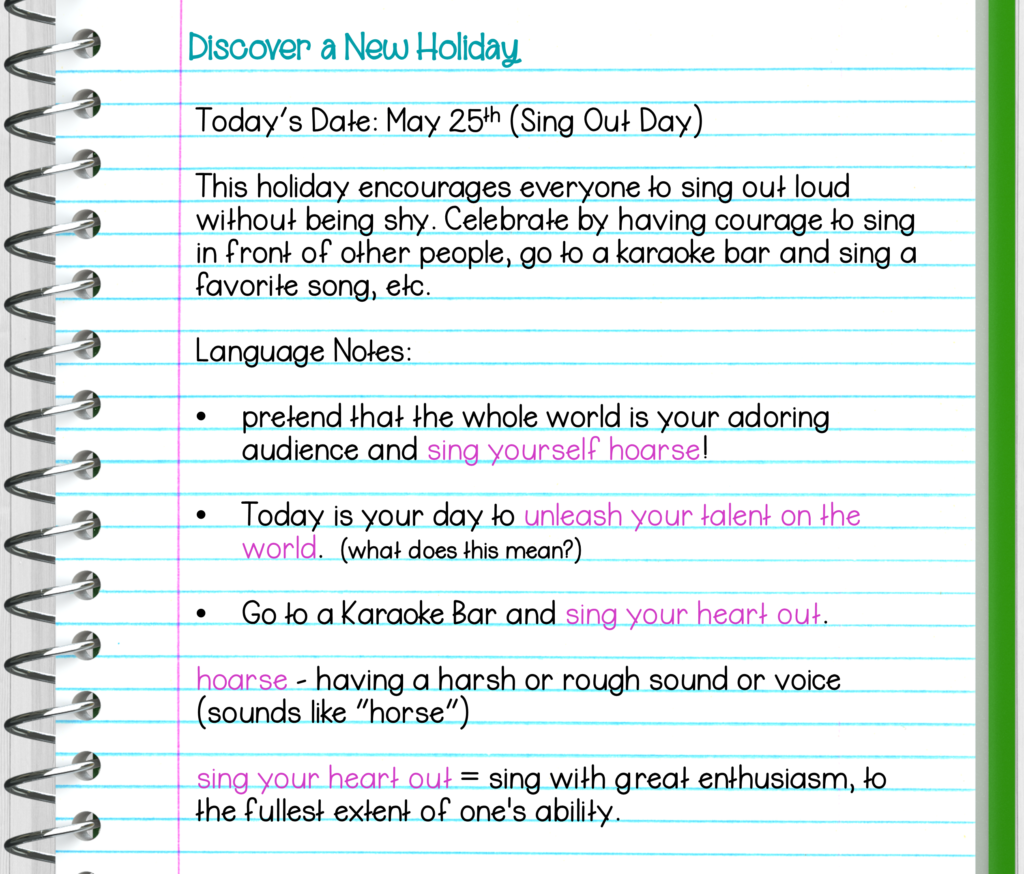 Discover a New Holiday
Today's Date: May 25th (Sing Out Day)
This holiday encourages everyone to sing out loud
without being shy. Celebrate by having courage to sing
in front of other people, go to a karaoke bar and sing a
favorite song, etc.
Language Notes:
• pretend that the whole world is your adoring
audience and sing yourself hoarse!
• Today is your day to unleash your talent on the
world. (what does this mean?)
• Go to a Karaoke Bar and sing your heart out.
hoarse - having a harsh or rough sound or voice
(sounds like "horse")
sing your heart out = sing with great enthusiasm, to
the fullest extent of one's ability.